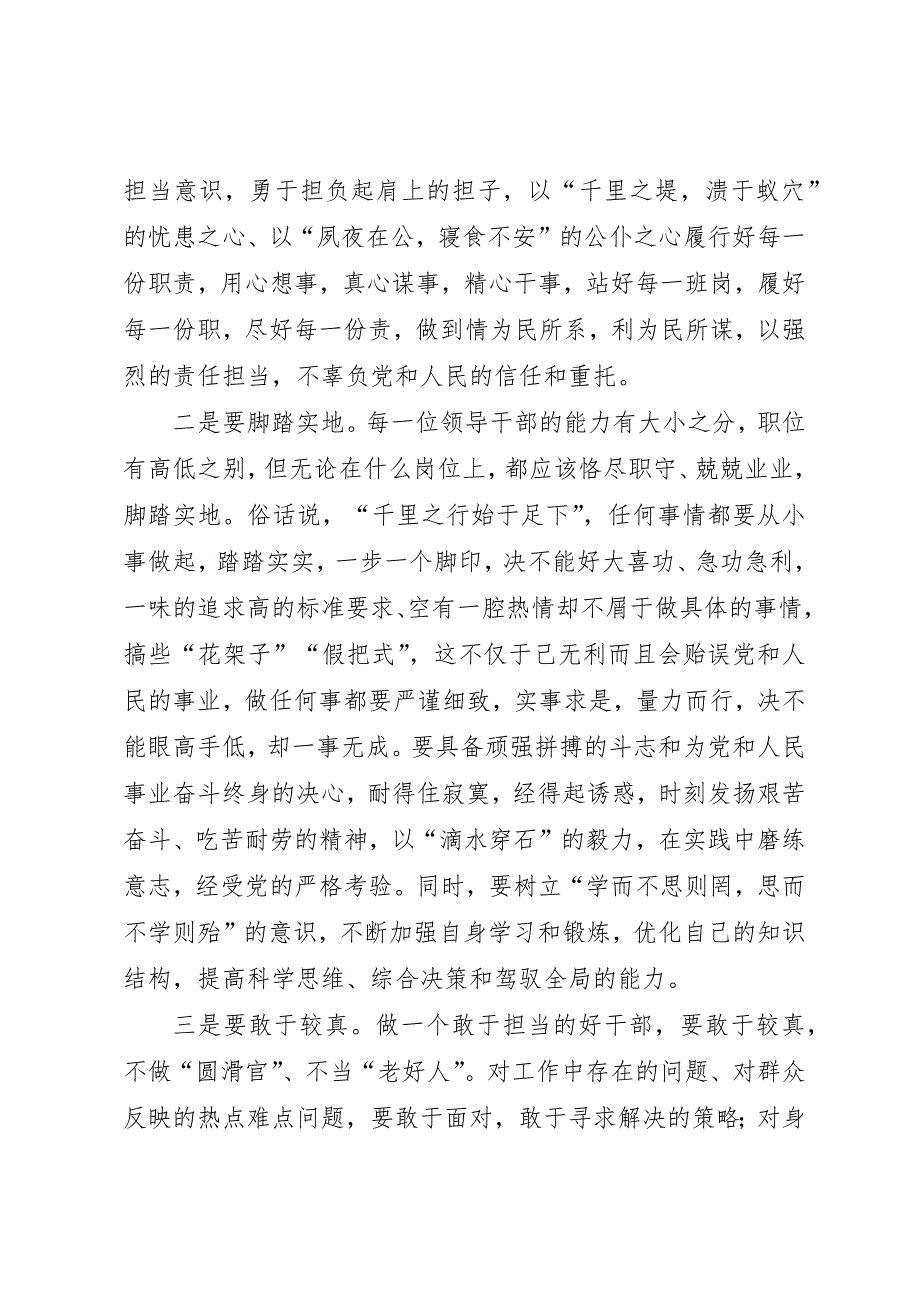 担当意识，勇于担负起肩上的担子，以“千里之堤，溃于蚁穴”
的忧患之心、以“夙夜在公，寝食不安”的公仆之心履行好每一
份职责，用心想事，真心谋事，精心干事，站好每一班岗，履好
每一份职，尽好每一份责，做到情为民所系，利为民所谋，以强
烈的责任担当，不辜负党和人民的信任和重托。
二是要脚踏实地。每一位领导干部的能力有大小之分，职位
有高低之别，但无论在什么岗位上，都应该恪尽职守、兢兢业业，
脚踏实地。俗话说，“千里之行始于足下”，任何事情都要从小
事做起，踏踏实实，一步一个脚印，决不能好大喜功、急功急利，
一味的追求高的标准要求、空有一腔热情却不屑于做具体的事情，
搞些“花架子”“假把式”，这不仅于己无利而且会贻误党和人
民的事业，做任何事都要严谨细致，实事求是，量力而行，决不
能眼高手低，却一事无成。要具备顽强拼搏的斗志和为党和人民
事业奋斗终身的决心，耐得住寂寞，经得起诱惑，时刻发扬艰苦
奋斗、吃苦耐劳的精神，以“滴水穿石”的毅力，在实践中磨练
意志，经受党的严格考验。同时，要树立“学而不思则罔，思而
不学则殆”的意识，不断加强自身学习和锻炼，优化自己的知识
结构，提高科学思维、综合决策和驾驭全局的能力。
三是要敢于较真。做一个敢于担当的好干部，要敢于较真，
不做“圆滑官”、不当“老好人”。对工作中存在的问题、对群众
反映的热点难点问题，要敢于面对，敢于寻求解决的策略；对身